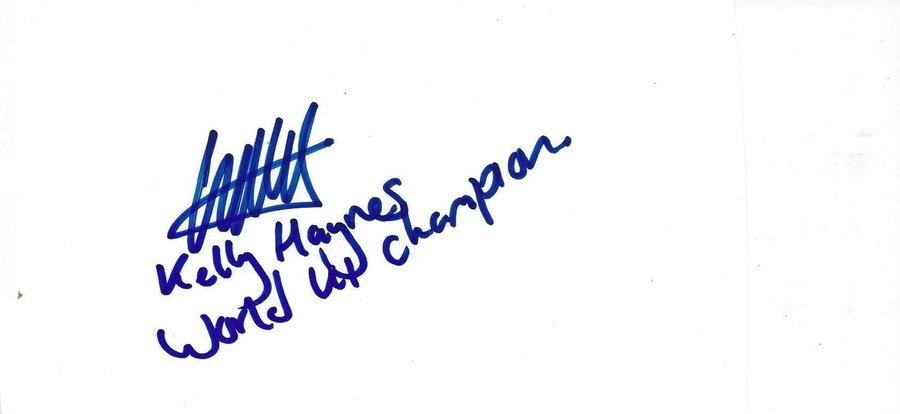 Kelly Haynes
World Champion